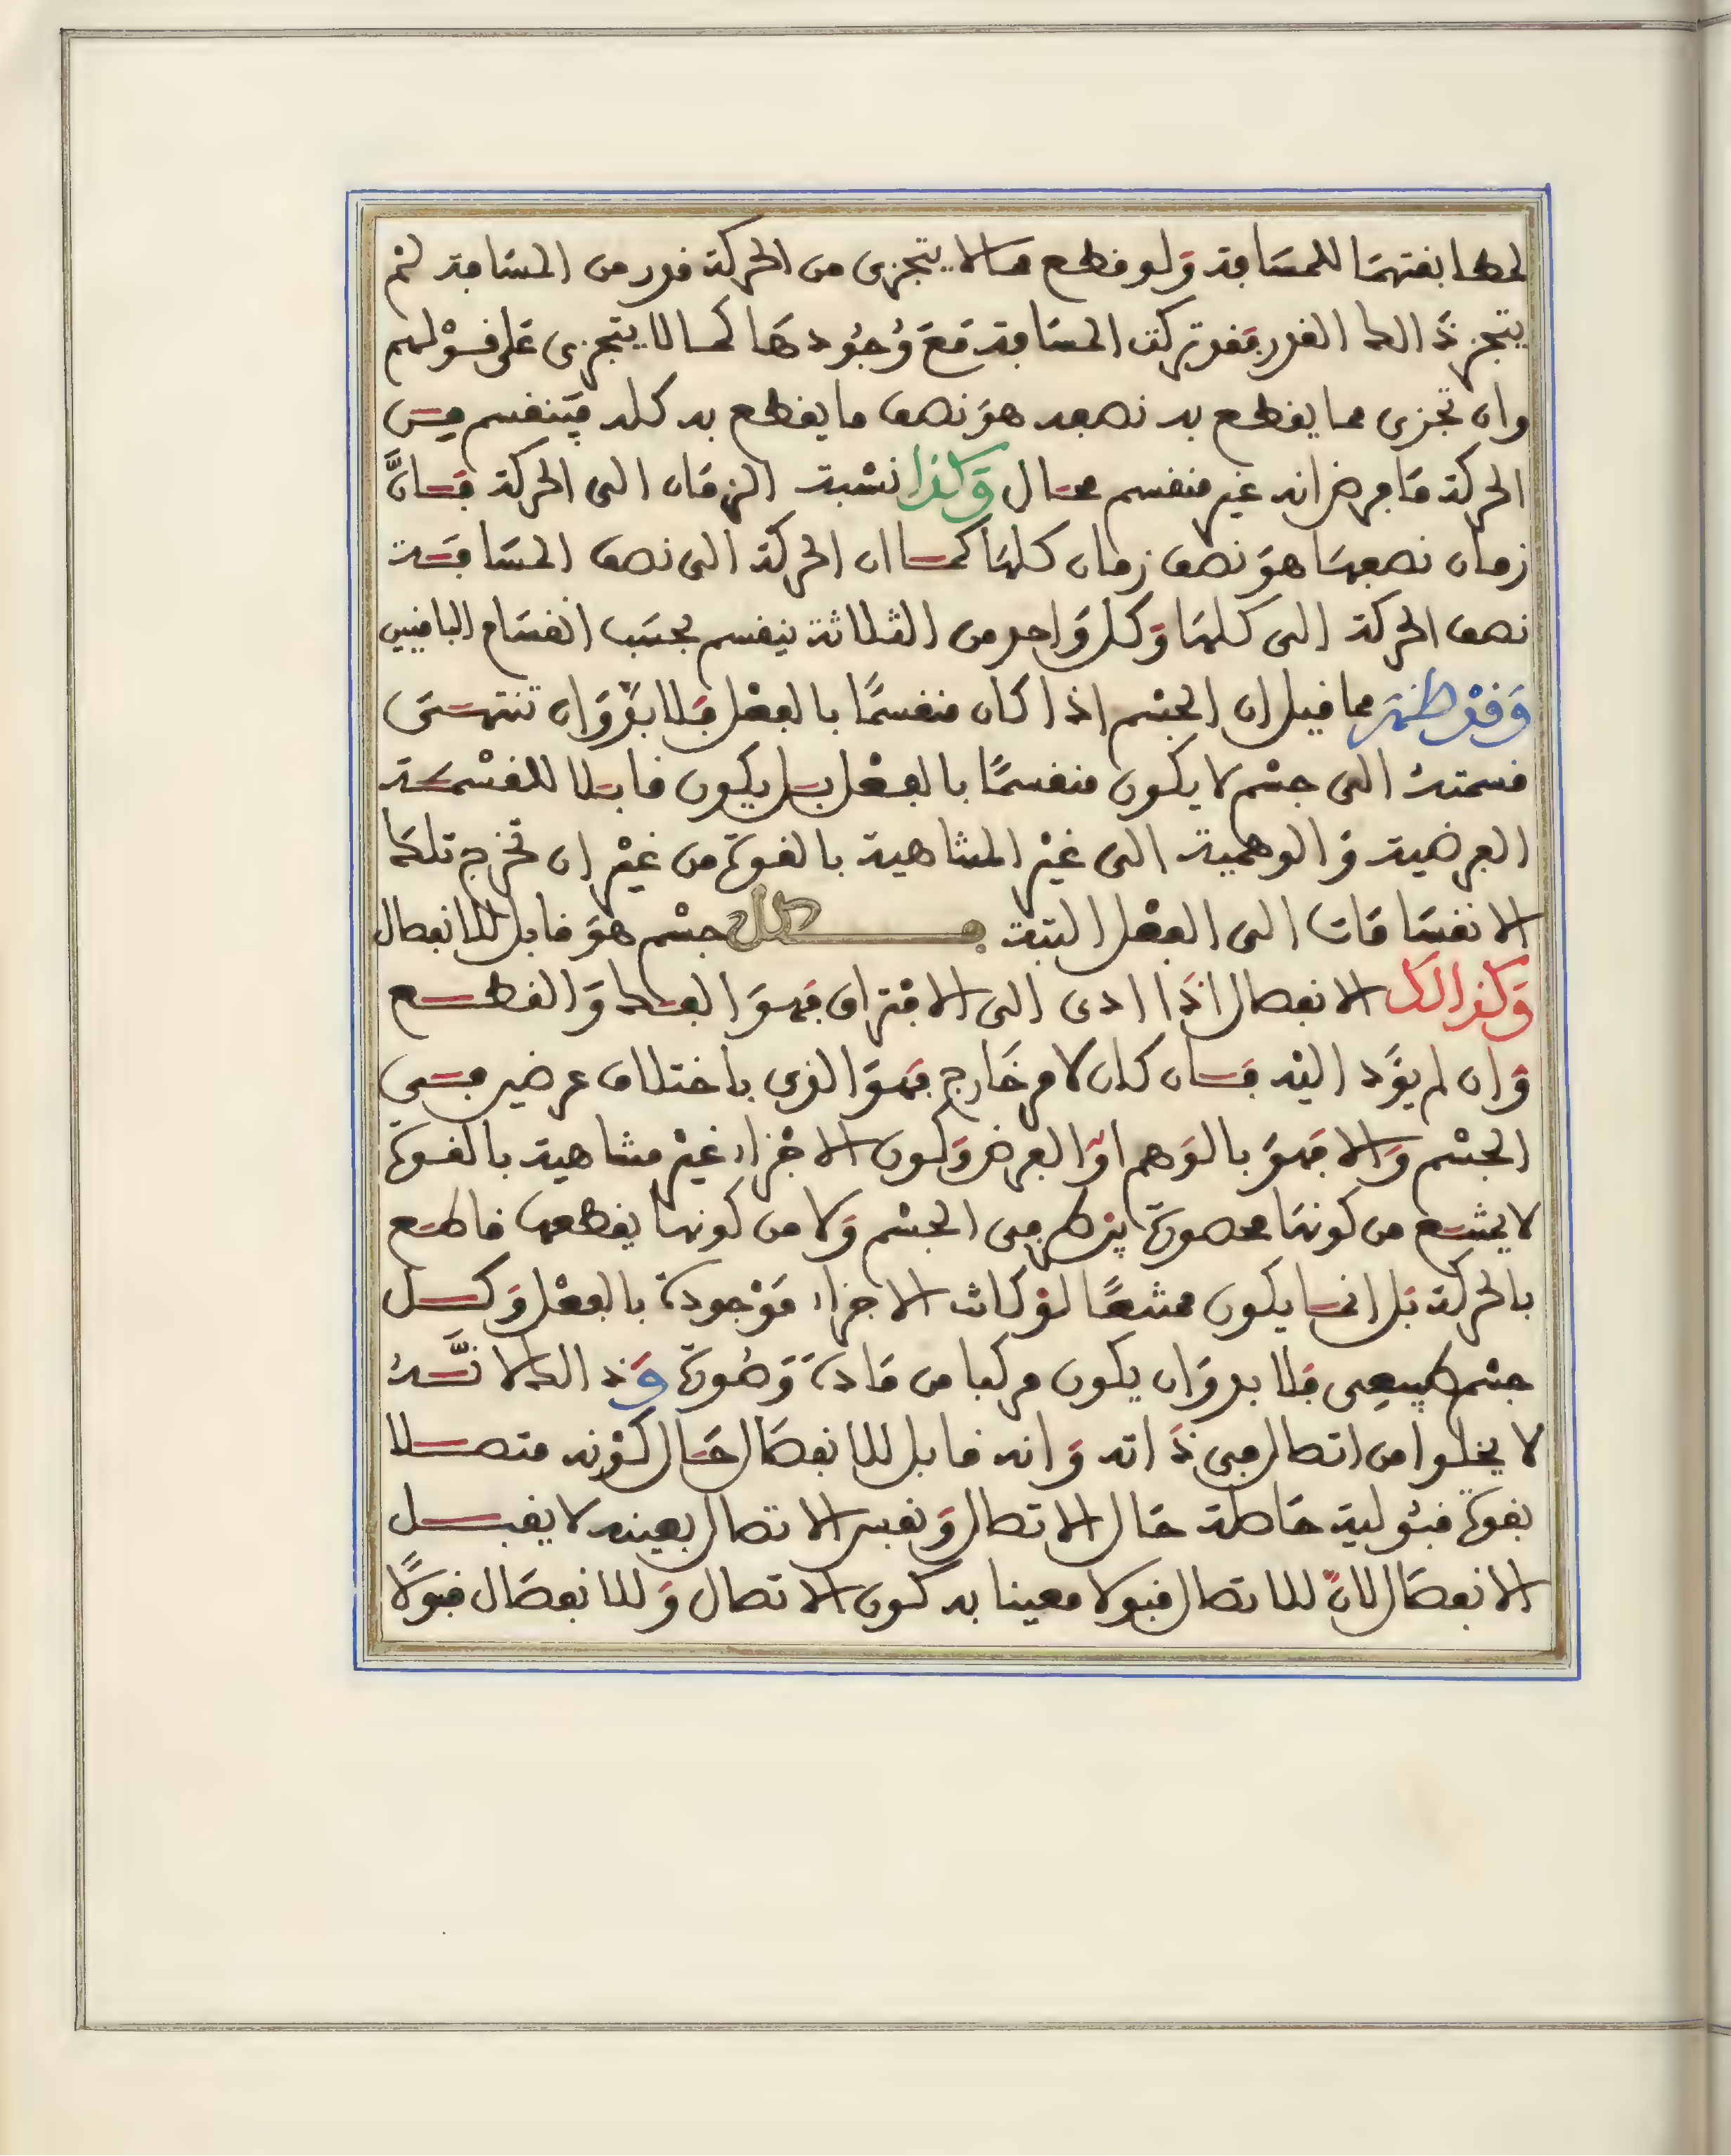 لمطابقتهما للمسافة وَلو قطع ما لا يتجزى من الحركة قدر من المسافة لم
يتجز ذَالك القدر فقد تركبت المسافة مَعَ وُجُودهَا كما لا يتجزى عَلى قَوْلهم
وان تجزى مما يقطع به نصفه هوَ نصف ما يقطع به كله فينقسم من
الحركة مَا فرض انه غير منقسم محال وَكذا نسْبة الزمَان الى الحركة فَانَّ
زمان نصفهَا هوَ نصف زمان كلهَا كما ان الحركة الى نصف المسَافة
نصف الحركة الى كلهَا وَكل وَاحد من الثلاثة ينقسم بحسَب انقسَام الباقيين
وَقدْ ظهَر مما قيل ان الجسْم اذا كان منقسمًا بالفعْل فَلا بدَّ وَان تنتهى
قسمتهُ الى جسْم لا يكون منقسمًا بالفعْل بل يكون قابلا للقسْمَة
الفرضية وَالوهمية الى غيْر المتناهية بالقوة من غيْر ان تخرج تلك
الانقسَامَات الى الفعْل البتة فكل جسْم هوَ قابل للانفصال
وَكذالك الانفصال اذَا ادى الى الافتراق فهوَ الفك وَالقطع
وَان لم يؤَد اليْه فَان كان لامر خَارج فهوَ الذى باختلاف عرضين فى
الجسْم وَالا فهوَ بالوَهم اوَ الفرض وَكون الاجْزاء غيْر متناهية بالقوة
لا يمتنع من كونهَا محصورة بنظر فى الجسْم وَلا من كونها يقطعها قاطع
بالحركة بَل انما يكون ممتنعًا لوْ كانت الاجزاء مَوْجودة بالفعْل وَكل
جسْم طبيعِى فَلا بد وَان يكون مركبا من مَادة وَصُورة وَذالك لانَّهُ
لا يخلوا من اتصال فى ذَاته وَانه قابل للانفصَال حَال كوْنه متصلا
بقوة قبُولية حَاصلة حَال الاتصال وَنفس الاتصال بعينه لا يقبل
الانفصَال لانَّ للاتصال قبولا معينا به كون الاتصال وَللانفصَال قبولاً